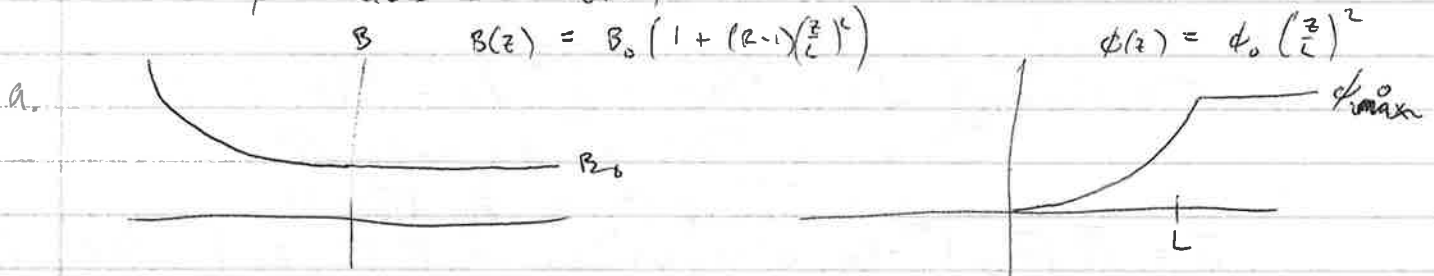 B B(z) = B₀ (1 + (R-1)(z/L)²) φ(z) = φ₀ (z/L)²
a.
φ₀
B₀
L